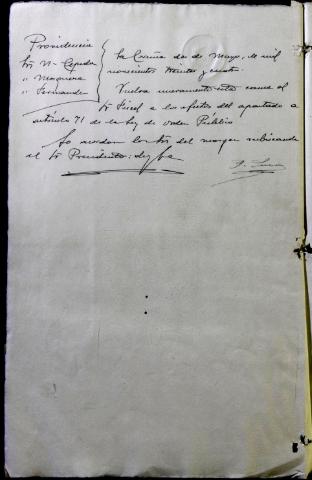 Providencia
Srs. N- Cepeda
" Maquera
" Fernandez
La Coruña dos de Mayo, de mil
novecientos treinta y cuatro.
Vuelva nuevamente esta causa al
Sr Fiscal a los efectos del apartado a
artículo 71 de la Ley de orden Público
Lo acordaron los Srs del margen rubricando
el Sr Presidente: doy fe